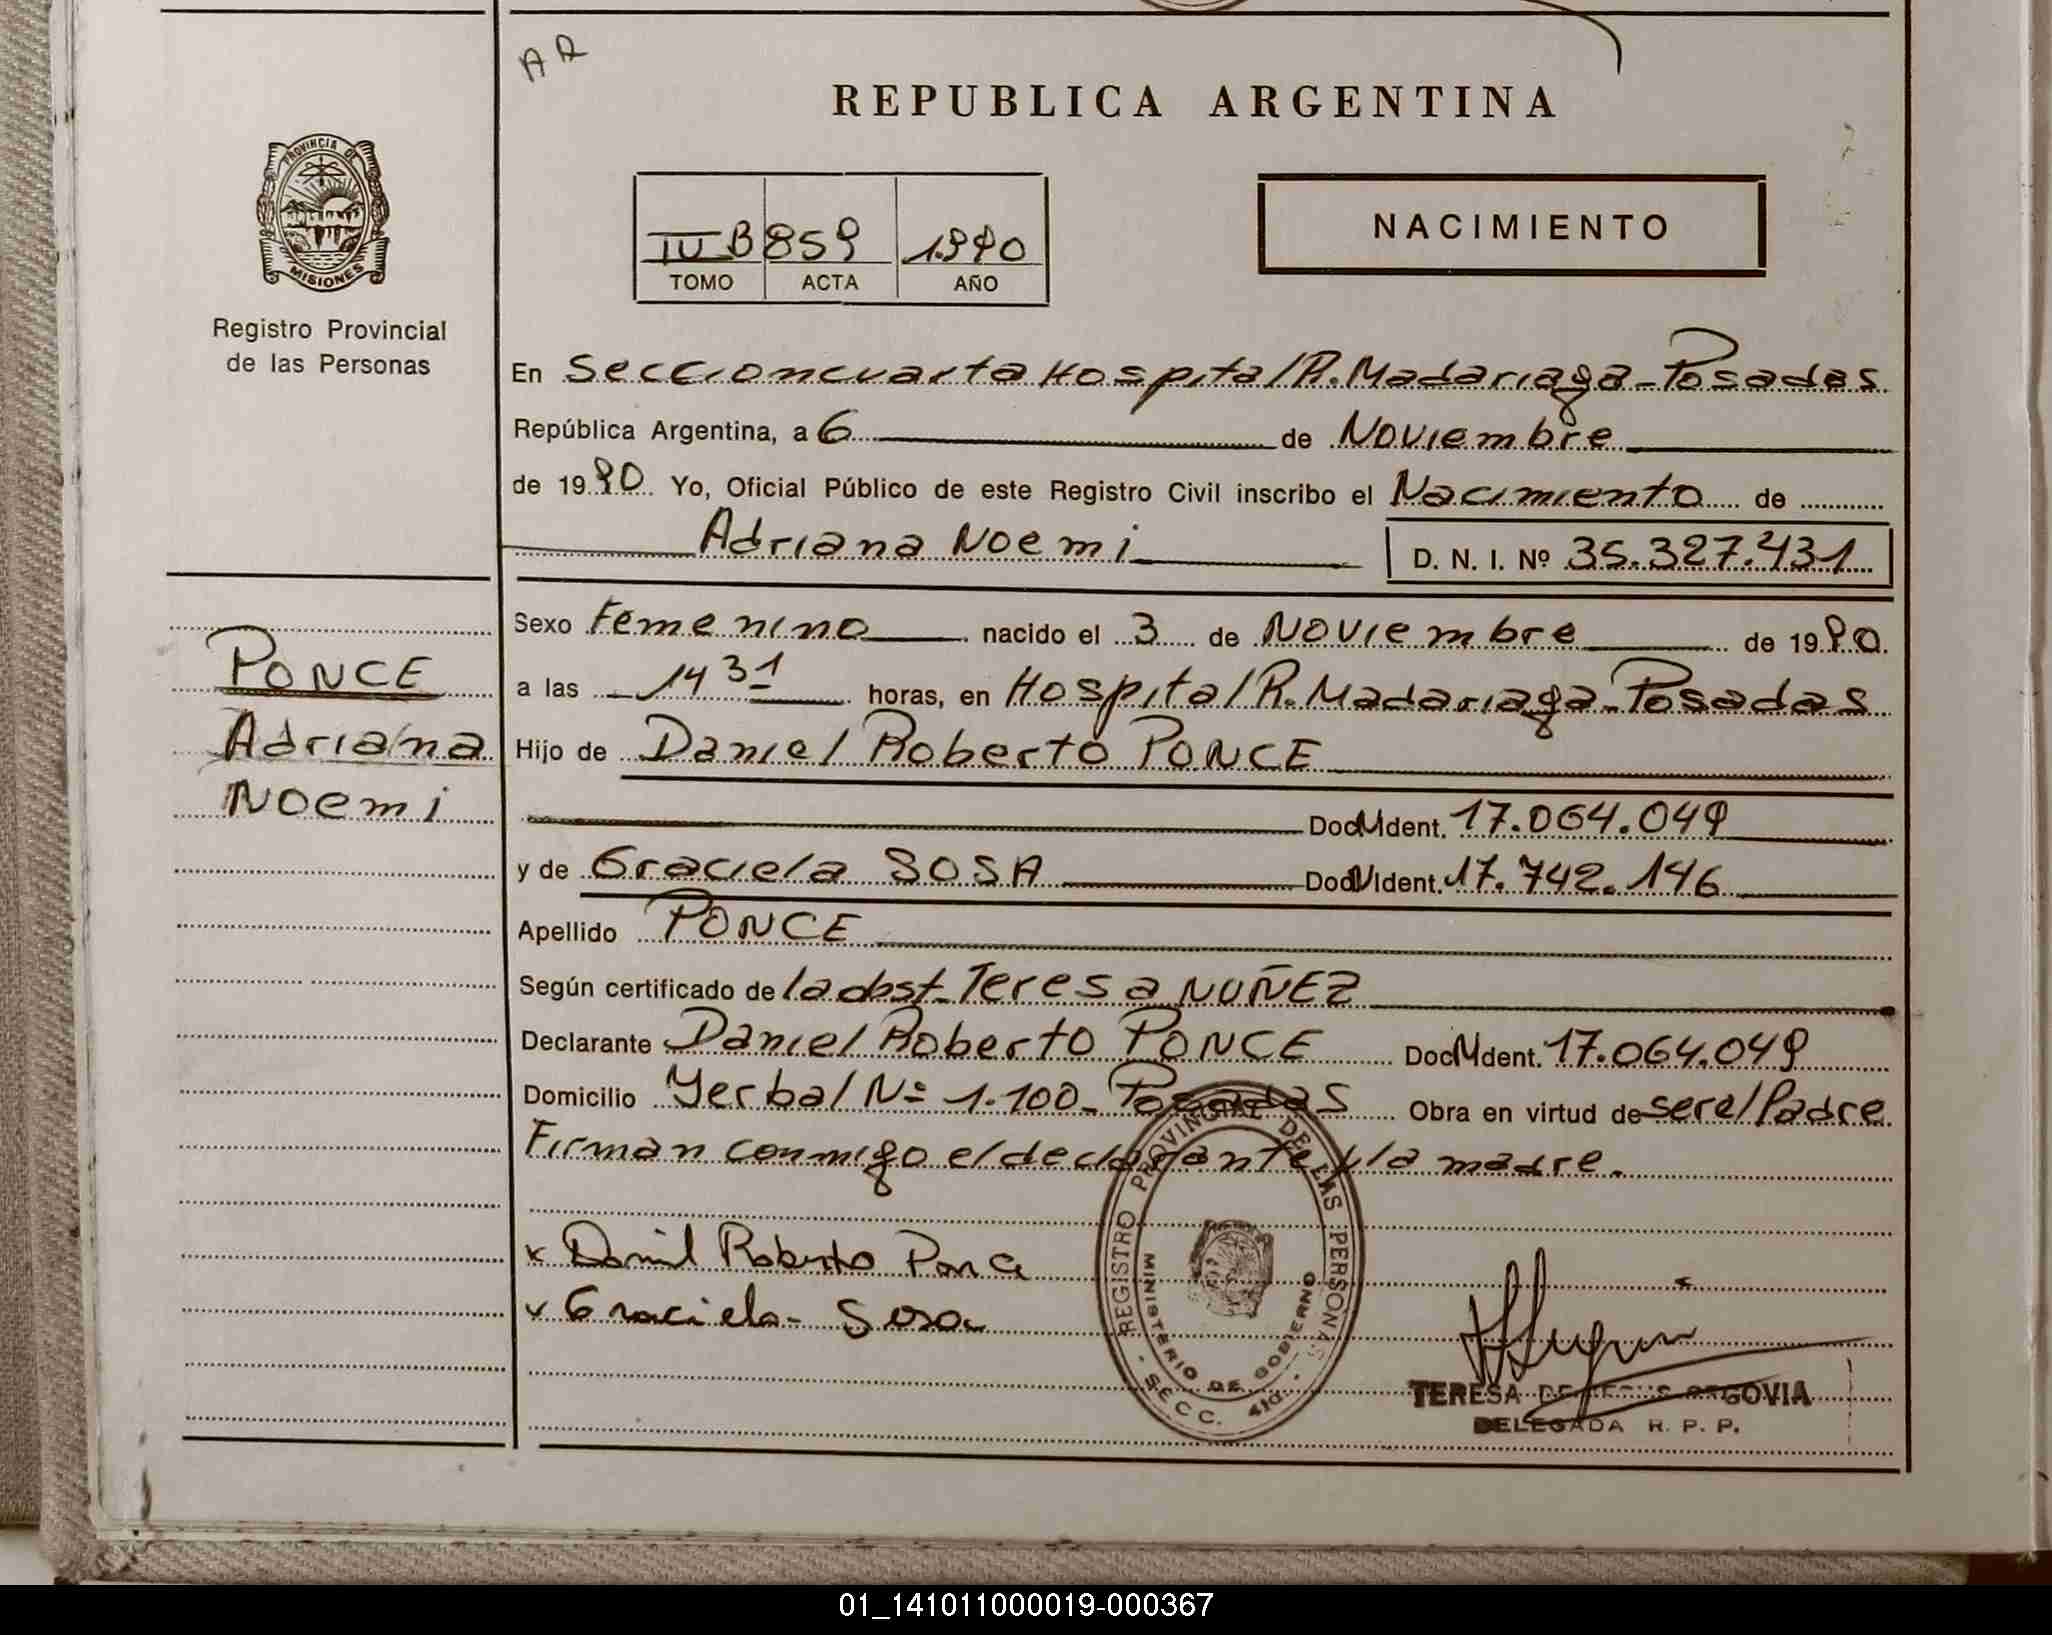 AR
REPUBLICA ARGENTINA
PROVINCIA DE
MISIONES
Registro Provincial
de las Personas
IV B 859 1.990
TOMO ACTA AÑO
NACIMIENTO
En Sección cuarta Hospital R. Madariaga - Posadas
República Argentina, a 6 de Noviembre
de 1990 Yo, Oficial Público de este Registro Civil inscribo el Nacimiento de
Adriana Noemi D. N. I. Nº 35.327.431
PONCE
Adriana
Noemi
Sexo Femenino nacido el 3 de Noviembre de 1990.
a las 14 31 horas, en Hospital R. Madariaga - Posadas
Hijo de Daniel Roberto PONCE
Doc. Ident. 17.064.049
y de Graciela SOSA Doc. Ident. 17.742.146
Apellido PONCE
Según certificado de la obst. Teresa NUÑEZ
Declarante Daniel Roberto PONCE Doc. Ident. 17.064.049
Domicilio Yerbal Nº 1.100 - Posadas Obra en virtud de ser el Padre
Firman conmigo el declarante y la madre.
x Daniel Roberto Ponce
x Graciela - Sosa
REGISTRO PROVINCIAL DE LAS PERSONAS
MINISTERIO DE GOBIERNO
- SECC. 4ta. -
TERESA DE JESUS SEGOVIA
DELEGADA R. P. P.
01_141011000019-000367